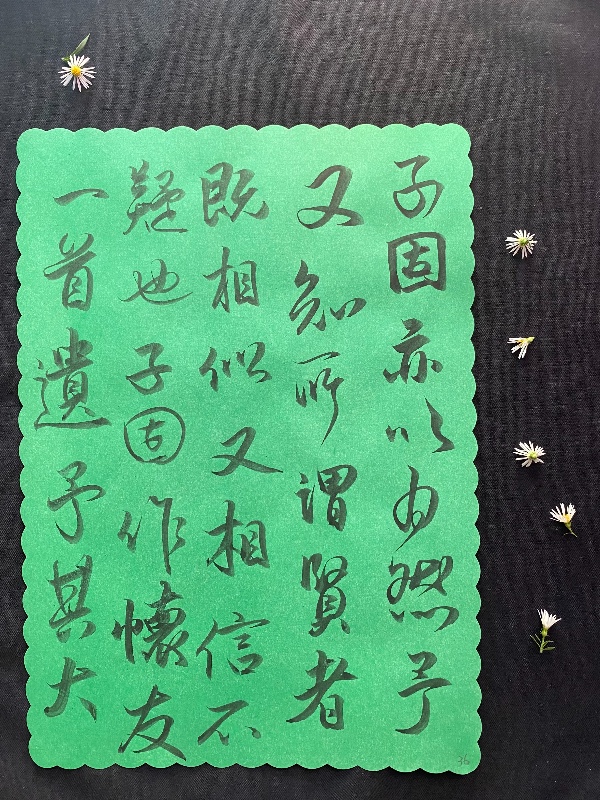 子固亦以為然予
又知所謂賢者
既相似又相信不
疑也子固作懷友
一首遺予其大
36